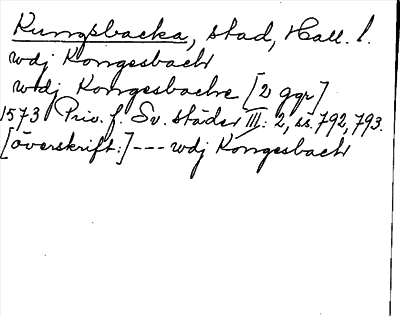 Kungsbacka, stad, Hall. l.
wdj Kongesbach
wdj Kongesbache [2 ggr]
1573 Priv. f. Sv. städer III: 2, ss. 792, 793.
[överskrift:] --- wdj Kongesbach